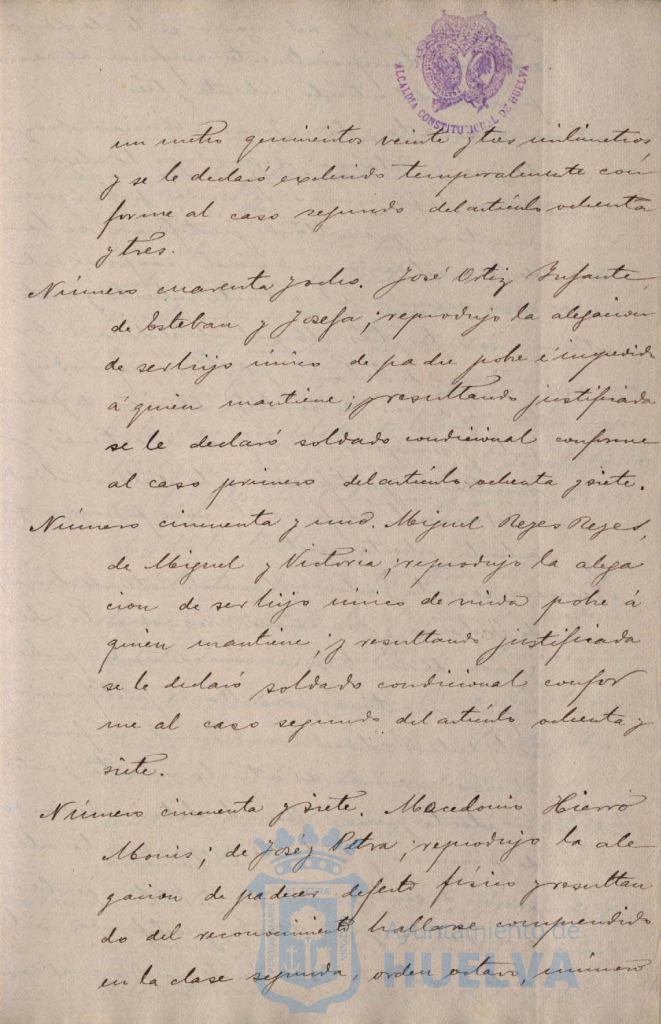 ALCALDIA CONSTITUCIONAL DE HUELVA
un metro quinientos veinte y tres milimetros
y se le declaró excluido temporalmente con
forme al caso segundo del artículo ochenta
y tres.
Número cuarenta y ocho. José Ortiz Infante,
de Esteban y Josefa; reprodujo la alegacion
de ser hijo único de padre pobre é impedido
á quien mantiene; y resultando justificada
se le declaró soldado condicional conforme
al caso primero del artículo ochenta y siete.
Número cincuenta y uno. Miguel Reyes Reyes,
de Miguel y Victoria; reprodujo la alega
cion de ser hijo único de viuda pobre á
quien mantiene; y resultando justificada
se le declaró soldado condicional confor
me al caso segundo del artículo ochenta y
siete.
Número cincuenta y siete. Macedonio Hierro
Monis; de José y Petra; reprodujo la ale-
gacion de padecer defecto físico y resultan
do del reconocimiento hallarse comprendido
en la clase segunda, orden octavo, número
Ayuntamiento de
HUELVA